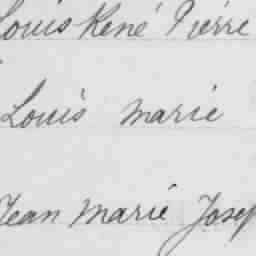 Louis René Pierre
Louis Marie
Jean Marie Josep